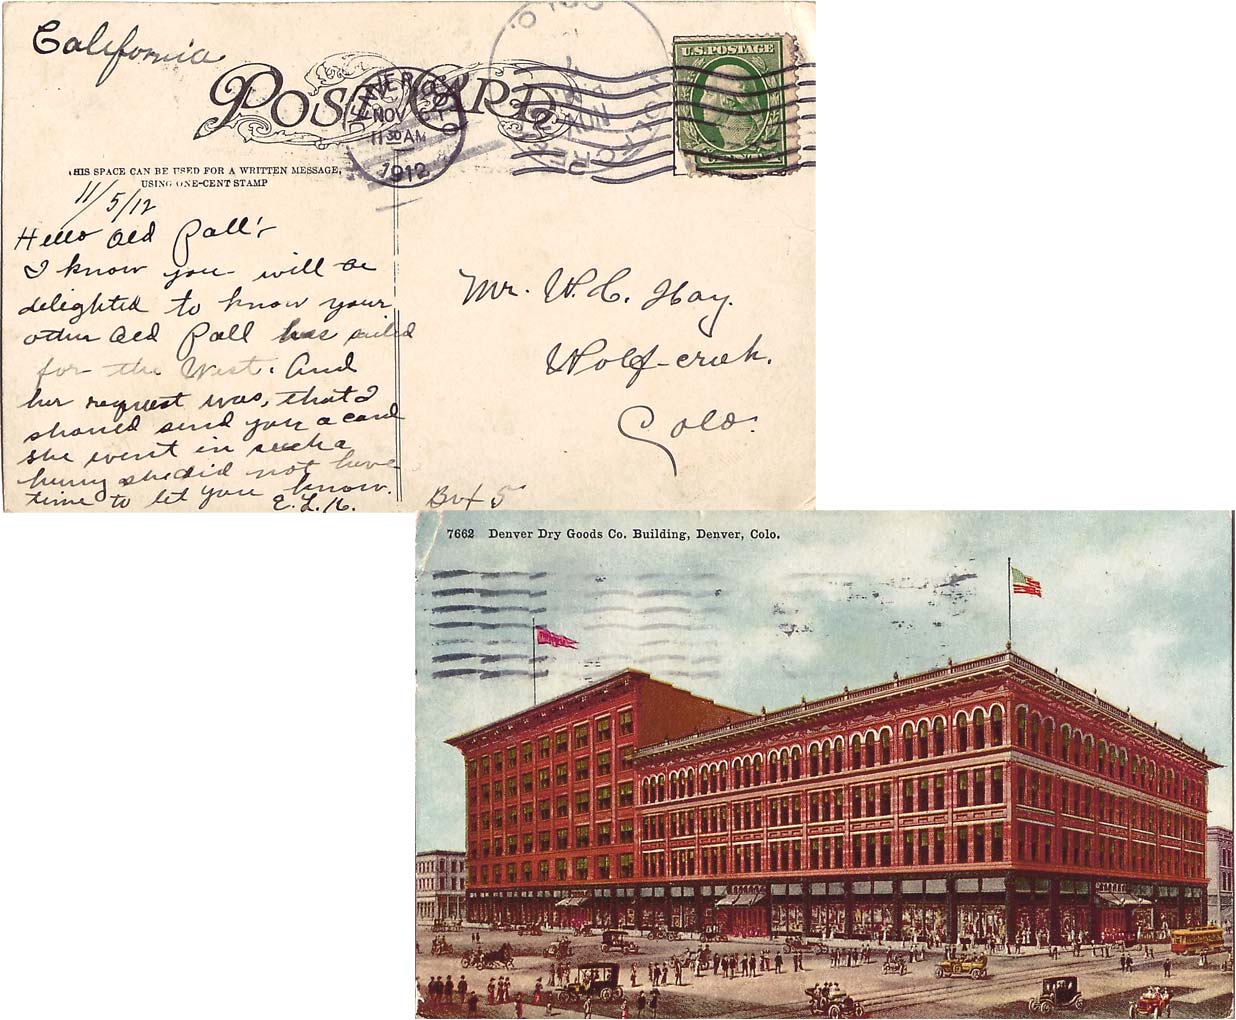 California
POST CARD
U.S. POSTAGE
DENVER COLO
NOV 6
11 30 AM
1912
THIS SPACE CAN BE USED FOR A WRITTEN MESSAGE,
USING ONE-CENT STAMP
11/5/12
Hello Old Pall's
I know you will be
delighted to know your
other Old Pall has sailed
for the West. And
her request was, that I
should send you a card
she went in such a
hurry she did not have
time to let you know.
E.L.K.
Mr. W. C. Hay.
Wolf-creek.
Colo.
Box 5
7662 Denver Dry Goods Co. Building, Denver, Colo.